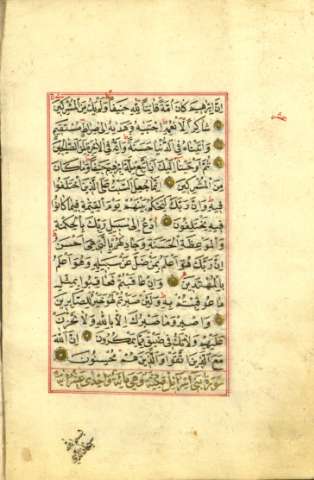 إن إبرهيم كان أمة قانتا لله حنيفا ولم يك من المشركين
شاكرا لأنعمه اجتبيه وهديه إلى صراط مستقيم
واتيناه في الدنيا حسنة وإنه في الآخرة لمن الصالحين
ثم أوحينا إليك أن اتبع ملة إبرهيم حنيفا وما كان
من المشركين إنما جعل السبت على الذين اختلفوا
فيه وإن ربك ليحكم بينهم يوم القيمة فيما كانوا
فيه يختلفون ادع إلى سبيل ربك بالحكمة
والموعظة الحسنة وجادلهم بالتي هي أحسن
إن ربك هو أعلم بمن ضل عن سبيله وهو أعلم
بالمهتدين وإن عاقبتم فعاقبوا بمثل
ما عوقبتم به ولئن صبرتم لهو خير للصابرين
واصبر وما صبرك إلا بالله ولا تحزن
عليهم ولا تك في ضيق مما يمكرون إن الله
مع الذين اتقوا والذين هم محسنون
سورة بني اسرائيل مكية وهي مائة واحدى عشرة آية